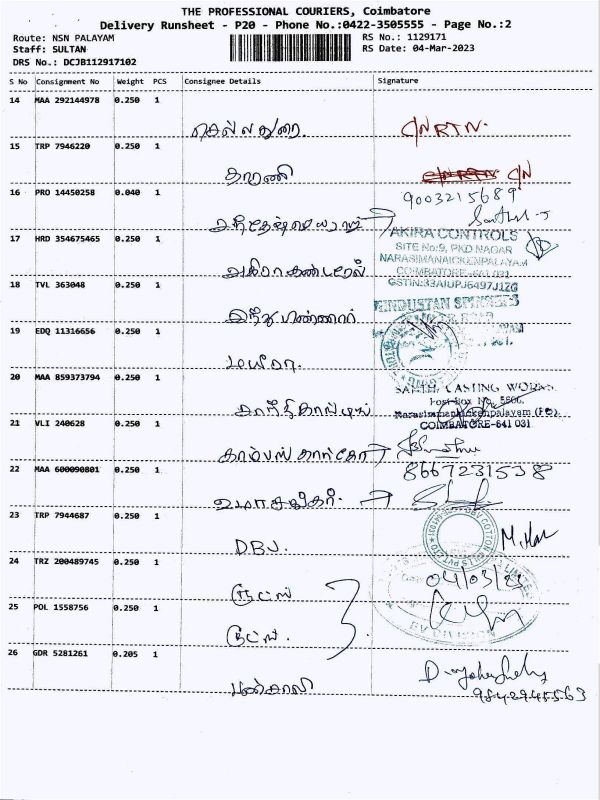 THE PROFESSIONAL COURIERS, Coimbatore
Delivery Runsheet - P20 - Phone No.:0422-3505555 - Page No.:2
Route: NSN PALAYAM
RS No.: 1129171
Staff: SULTAN
RS Date: 04-Mar-2023
DRS No.: DCJB112917102
S No Consignment No Weight PCS Consignee Details Signature
14 MAA 292144978 0.250 1
செல்லதுரை. C/N RTN.
15 TRP 7946220 0.250 1
தாரணி C/N
16 PRO 14450258 0.040 1
9003215689
17 HRD 354675465 0.250 1
AKIRA CONTROLS
SITE No:9, PKD NAGAR
NARASIMANAICKENPALAYAM
COIMBATORE-641 031
GSTIN:33AIUPJ6497J1ZG
18 TVL 363048 0.250 1
HINDUSTAN SPINNERS
19 EDQ 11316656 0.250 1
20 MAA 859373794 0.250 1
CASTING WORKS
Post Box No. 5806,
Narasimanaickenpalayam (PO),
COIMBATORE-641 031
21 VLI 240628 0.250 1
8667231538
22 MAA 600090801 0.250 1
23 TRP 7944687 0.250 1
DBV COTTON MILLS PVT LTD
DBV.
24 TRZ 200489745 0.250 1
04/03/23
ரூட்ஸ்
25 POL 1558756 0.250 1
ரூட்ஸ்.
26 GDR 5281261 0.205 1
பண்காளி
9842945563